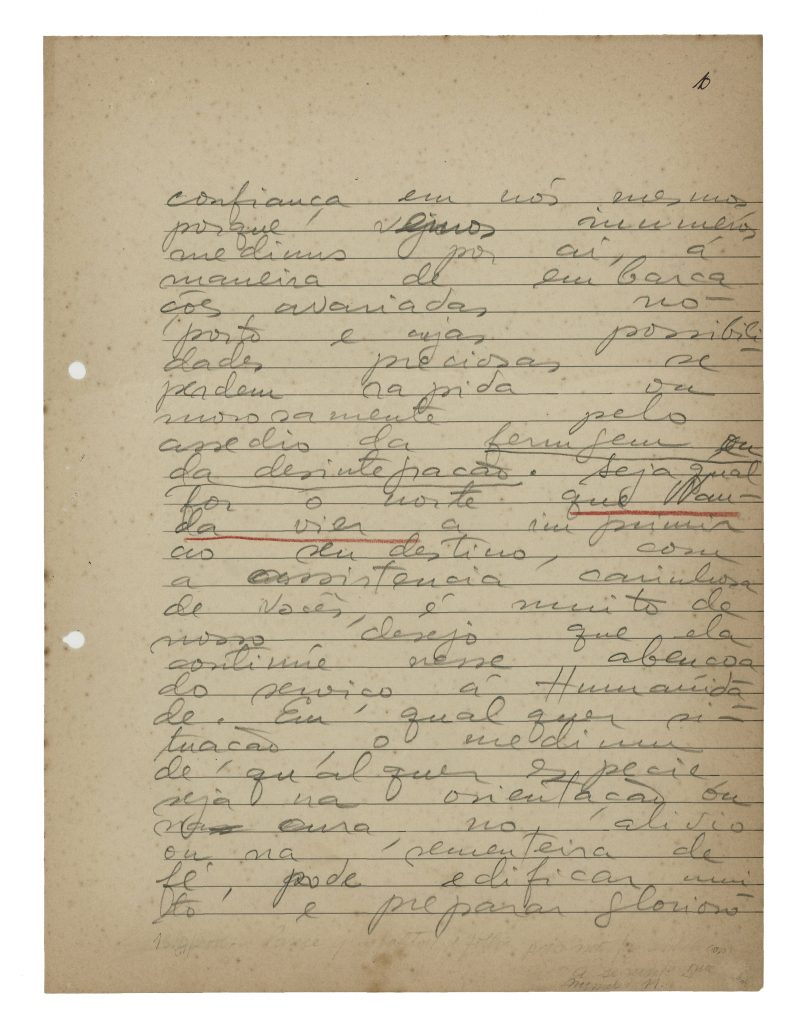 10
confiança em nós mesmos
porque vejmos inumeros
mediuns por aí, á
maneira de embarca
ções avariadas no
porto e cujas possibili
dades preciosas se
perdem rapida ou
morosamente pelo
assedio da ferrugem ou
da desintegração. Seja qual
for o norte que Wan-
da vier a imprimir
ao seu destino, com
a assistencia carinhosa
de Vocês, é muito de
nosso desejo que ela
continúe nesse abençoa
do serviço á Humanida
de. Em qualquer si-
tuação, o medium
de qualquer especie,
seja na orientação ou
na cura no alivio
ou na sementeira de
fé, pode edificar mui
to e preparar glorioso